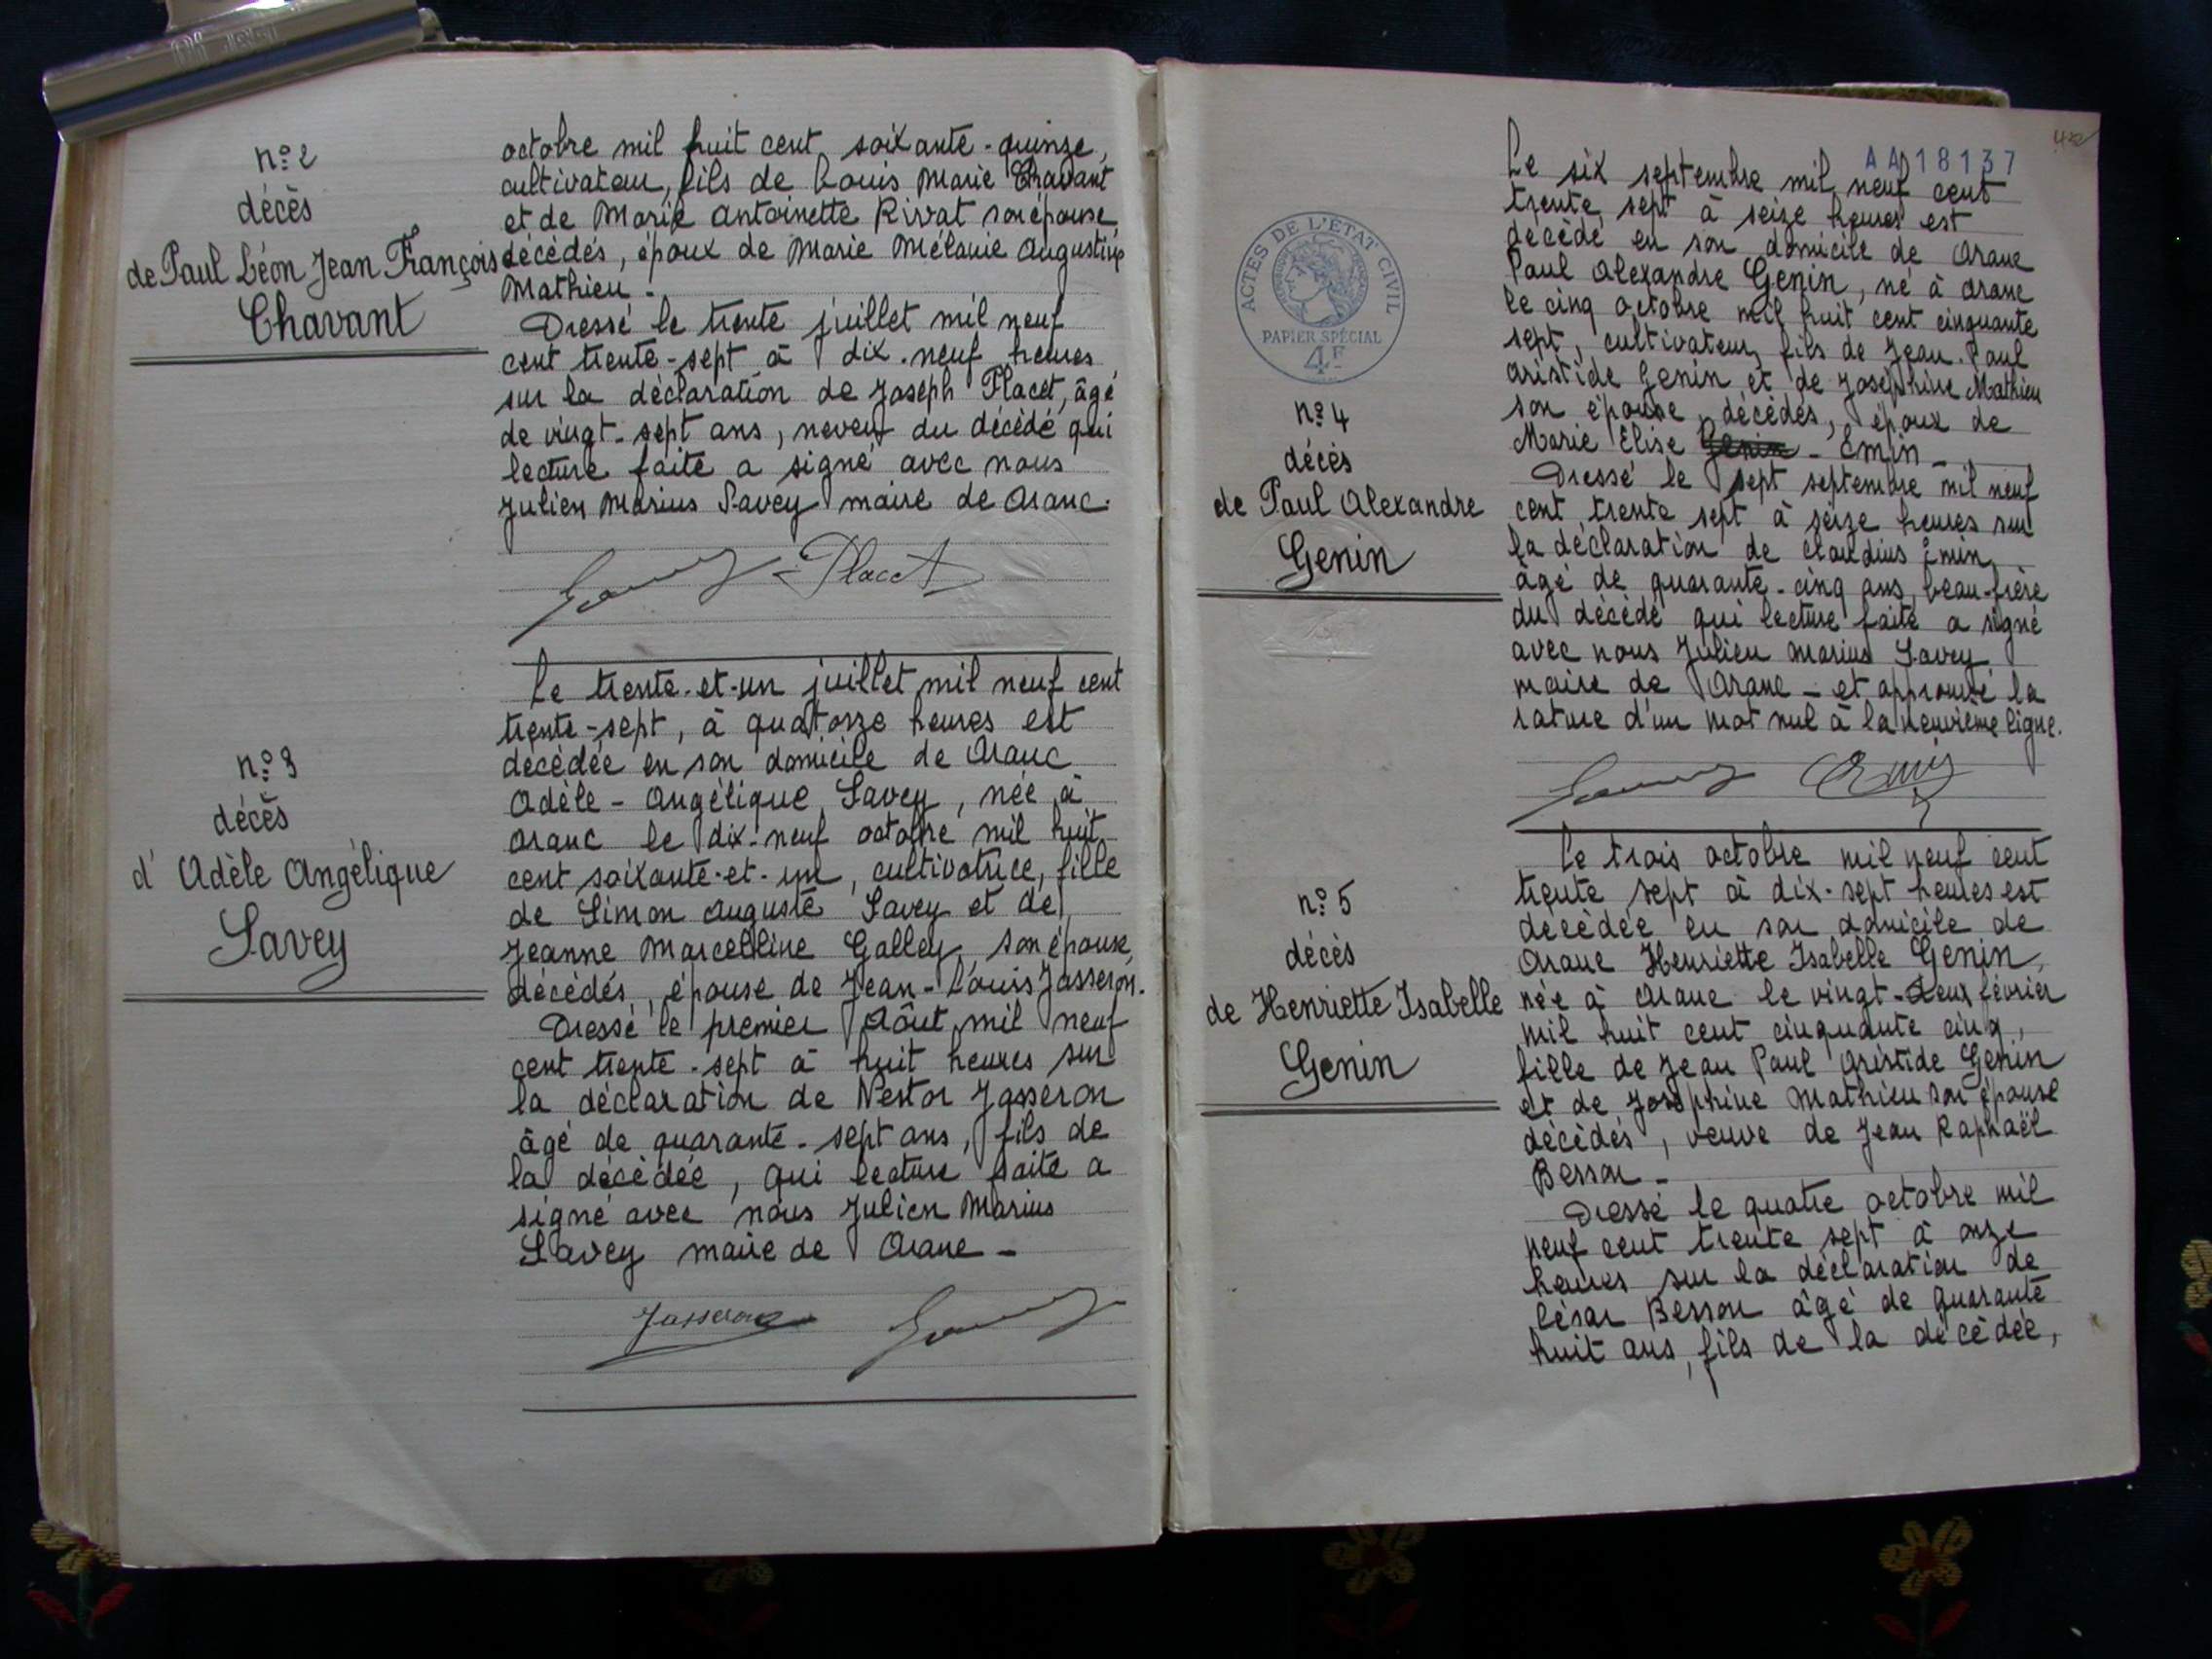 n° 2
décès
de Paul Léon Jean François
Chavant
octobre mil huit cent soixante-quinze,
cultivateur, fils de Louis Marie Chavant
et de Marie Antoinette Rivat son épouse,
décédés, époux de Marie Mélanie Augustine
Mathieu.
Dressé le trente juillet mil neuf
cent trente-sept à dix-neuf heures
sur la déclaration de Joseph Placet, âgé
de vingt-sept ans, neveu du décédé qui
lecture faite a signé avec nous
Julien Marius Savey maire de Aranc.
Placet
n° 3
décès
d'Adèle Angélique
Savey
Le trente-et-un juillet mil neuf cent
trente-sept, à quatorze heures est
décédée en son domicile de Aranc
Adèle-Angélique Savey, née à
Aranc le dix-neuf octobre mil huit
cent soixante-et-un, cultivatrice, fille
de Simon Auguste Savey et de
Jeanne Marcelline Galley, son épouse,
décédés, épouse de Jean-Louis Jasseron.
Dressé le premier Août mil neuf
cent trente-sept à huit heures sur
la déclaration de Nestor Jasseron
âgé de quarante-sept ans, fils de
la décédée, qui lecture faite a
signé avec nous Julien Marius
Savey maire de Aranc -
Jasseron
AA18137
ACTES DE L'ÉTAT CIVIL
PAPIER SPÉCIAL
4F
n° 4
décès
de Paul Alexandre
Genin
Le six septembre mil neuf cent
trente sept à seize heures est
décédé en son domicile de Aranc
Paul Alexandre Genin, né à Aranc
le cinq octobre mil huit cent cinquante
sept, cultivateur, fils de Jean-Paul
Aristide Genin et de Joséphine Mathieu
son épouse décédés, époux de
Marie Elise Genin - Emin -
Dressé le sept septembre mil neuf
cent trente sept à seize heures sur
la déclaration de Claudius Emin,
âgé de quarante-cinq ans, beau-frère
du décédé qui lecture faite a signé
avec nous Julien Marius Savey
maire de Aranc - et approuvé la
rature d'un mot nul à la neuvième ligne.
n° 5
décès
de Henriette Isabelle
Genin
Le trois octobre mil neuf cent
trente sept à dix-sept heures est
décédée en son domicile de
Aranc Henriette Isabelle Genin,
née à Aranc le vingt-deux février
mil huit cent cinquante cinq,
fille de Jean Paul Aristide Genin
et de Joséphine Mathieu son épouse
décédés, veuve de Jean Raphaël
Besson -
Dressé le quatre octobre mil
neuf cent trente sept à onze
heures sur la déclaration de
César Besson âgé de quarante
huit ans, fils de la décédée,